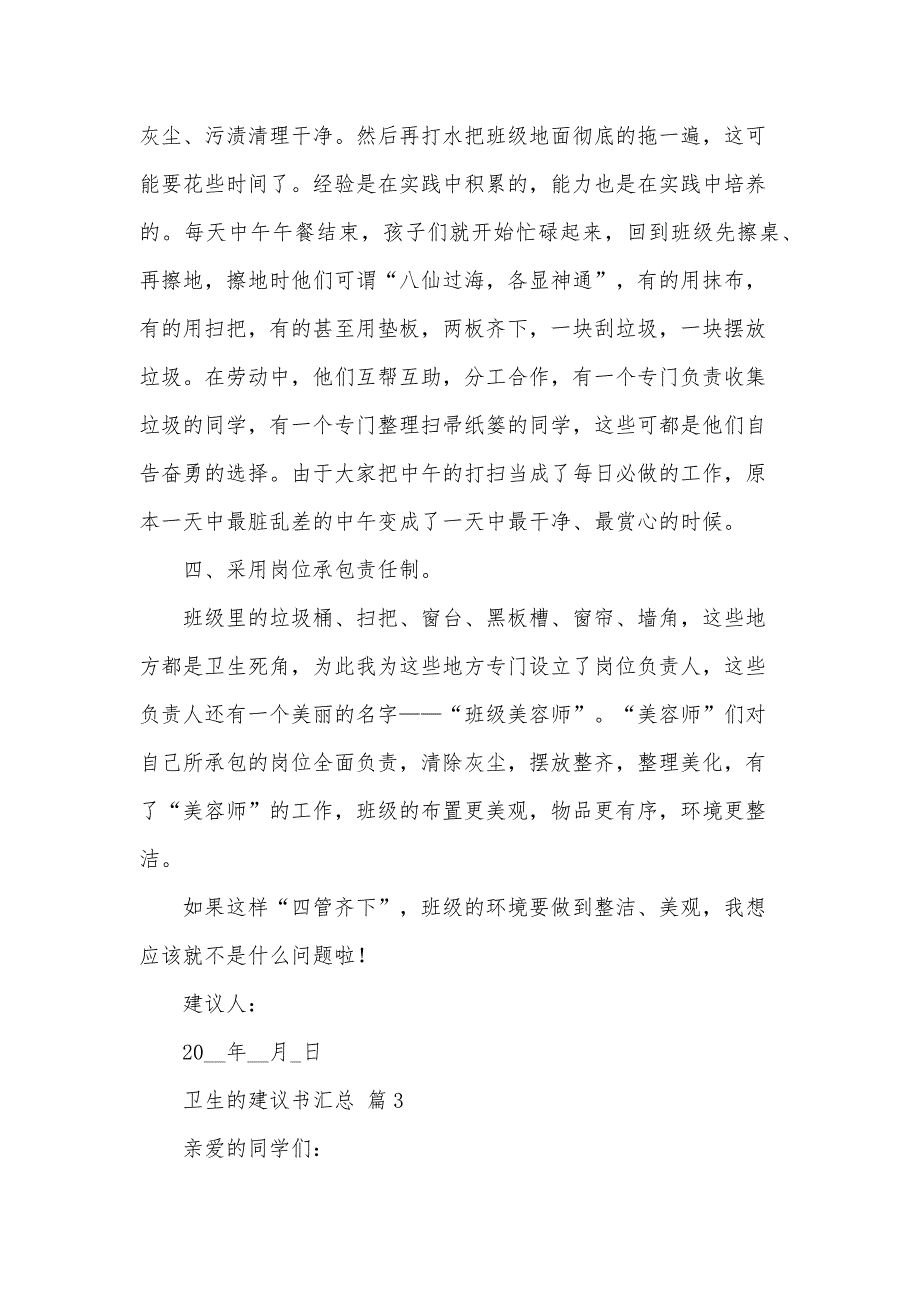 灰尘、污渍清理干净。然后再打水把班级地面彻底的拖一遍，这可
能要花些时间了。经验是在实践中积累的，能力也是在实践中培养
的。每天中午午餐结束，孩子们就开始忙碌起来，回到班级先擦桌、
再擦地，擦地时他们可谓“八仙过海，各显神通”，有的用抹布，
有的用扫把，有的甚至用垫板，两板齐下，一块刮垃圾，一块摆放
垃圾。在劳动中，他们互帮互助，分工合作，有一个专门负责收集
垃圾的同学，有一个专门整理扫帚纸篓的同学，这些可都是他们自
告奋勇的选择。由于大家把中午的打扫当成了每日必做的工作，原
本一天中最脏乱差的中午变成了一天中最干净、最赏心的时候。
四、采用岗位承包责任制。
班级里的垃圾桶、扫把、窗台、黑板槽、窗帘、墙角，这些地
方都是卫生死角，为此我为这些地方专门设立了岗位负责人，这些
负责人还有一个美丽的名字——“班级美容师”。“美容师”们对
自己所承包的岗位全面负责，清除灰尘，摆放整齐，整理美化，有
了“美容师”的工作，班级的布置更美观，物品更有序，环境更整
洁。
如果这样“四管齐下”，班级的环境要做到整洁、美观，我想
应该就不是什么问题啦！
建议人：
20__年__月_日
卫生的建议书汇总 篇3
亲爱的同学们：